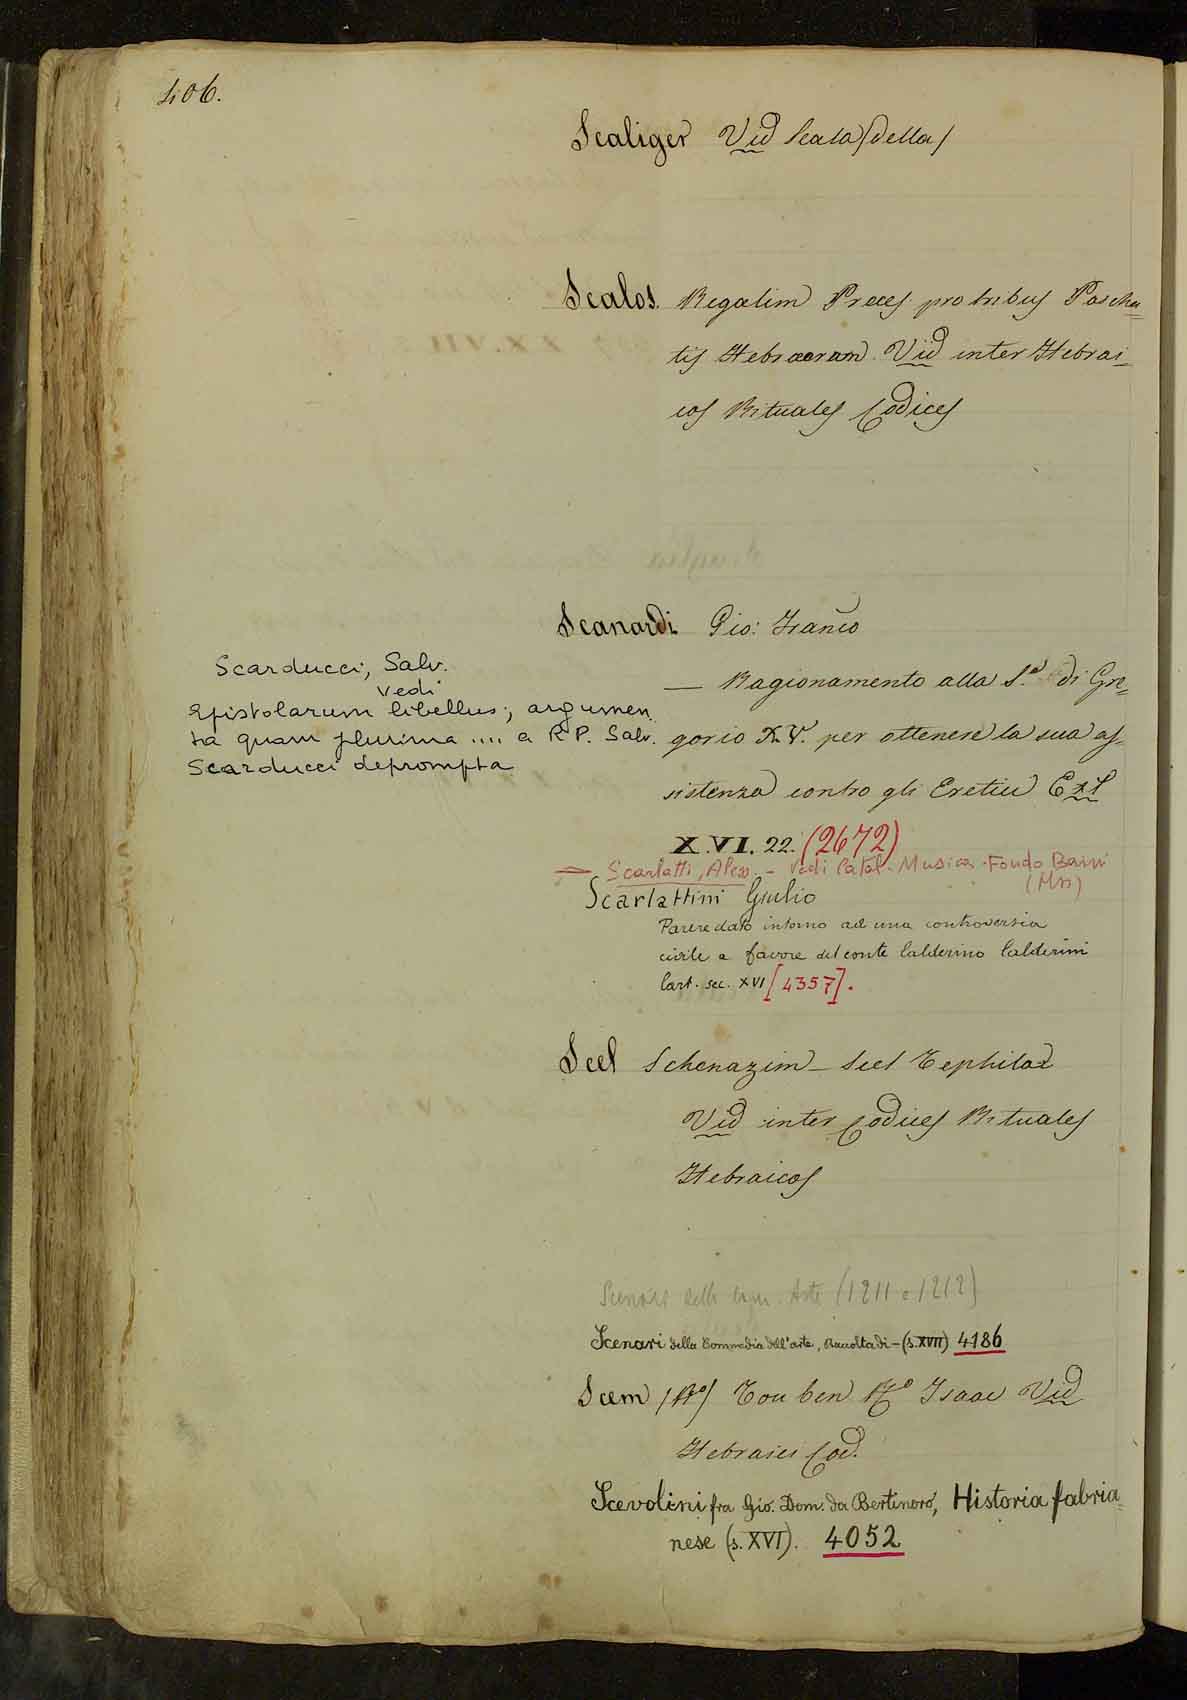 406.
Scaliger Vid Scala (della)
Scalos. Regalim Preces pro tribus Pascha=
tis Hebraeorum. Vid inter Hebrai=
cos Rituales Codices
Scanardi Gio: Franco
— Ragionamento alla S.ª di Gre=
gorio XV. per ottenere la sua as=
sistenza contro gli Eretici Ext
X.VI.22. (2672)
Scarducci, Salv.
Vedi
Epistolarum libellus; argumen
ta quam plurima .... a R P. Salv.
Scarducci deprompta
— Scarlatti, Aless. - Vedi Catal. Musica - Fondo Baini
(Mss)
Scarlattini Giulio
Parere dato intorno ad una controversia
civile a favore del conte Calderino Calderini
Cart. sec. XVI [4357].
Scel Schenazim - Scel Tephilat
Vid inter Codices Rituales
Hebraicos
Scenari della Com. Arte (1211 e 1212)
Scenari della Commedia dell'arte, Raccolta di - (s. XVII) 4186
Scem (Rº) Tou ben Rº Isaac Vid
Hebraici Cod.
Scevolini fra Gio. Dom. da Bertinoro, Historia fabria=
nese (s. XVI). 4052